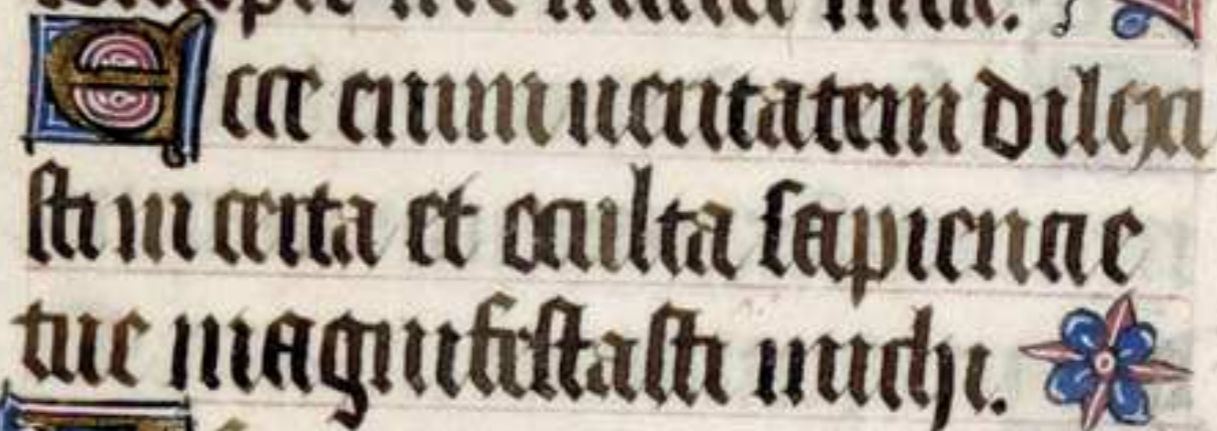 Ecce enim ueritatem dilexi
sti in certa et oculta sapiencie
tue magnifestasti michi.